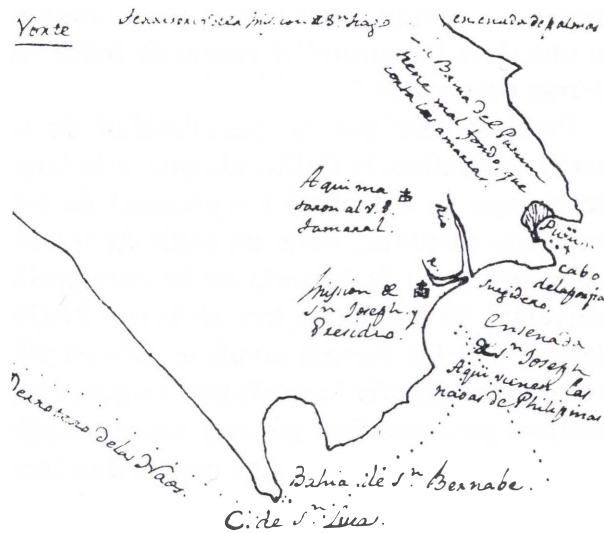 Norte
Territorio de la Mission de Sn. Tiago
ensenada de palmas
La Bahia del Purum
tiene mal fondo, que
corta las amarras.
Aqui ma
taron al V. P.
Tamaral.
Rio
Purum
cabo
de la porfia
Mission de
Sn. Joseph y
Presidio.
surgidero.
Ensenada
de Sn. Joseph
Aqui vienen las
naos de Philipinas
Derrotero de las Naos.
Bahia de Sn. Bernabe.
C. de Sn. Lucas.